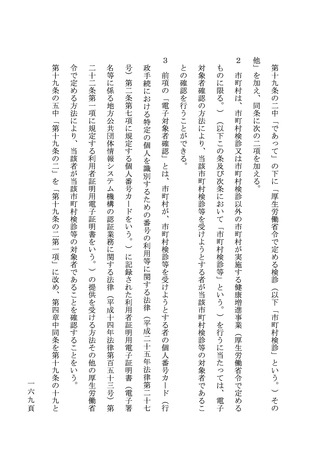 第十九条の二中「であって」の下に「厚生労働省令で定める検診（以下「市町村検診」という。）その
他」を加え、同条に次の二項を加える。
２　市町村は、市町村検診又は市町村検診以外の市町村が実施する健康増進事業（厚生労働省令で定める
ものに限る。）（以下この条及び次条において「市町村検診等」という。）を行うに当たっては、電子
対象者確認の方法により、当該市町村検診等を受けようとする者が当該市町村検診等の対象者であるこ
との確認を行うことができる。
３　前項の「電子対象者確認」とは、市町村が、市町村検診等を受けようとする者の個人番号カード（行
政手続における特定の個人を識別するための番号の利用等に関する法律（平成二十五年法律第二十七
号）第二条第七項に規定する個人番号カードをいう。）に記録された利用者証明用電子証明書（電子署
名等に係る地方公共団体情報システム機構の認証業務に関する法律（平成十四年法律第百五十三号）第
二十二条第一項に規定する利用者証明用電子証明書をいう。）の提供を受ける方法その他の厚生労働省
令で定める方法により、当該者が当該市町村検診等の対象者であることを確認することをいう。
第十九条の五中「第十九条の二」を「第十九条の二第一項」に改め、第四章中同条を第十九条の十九と
一六九頁